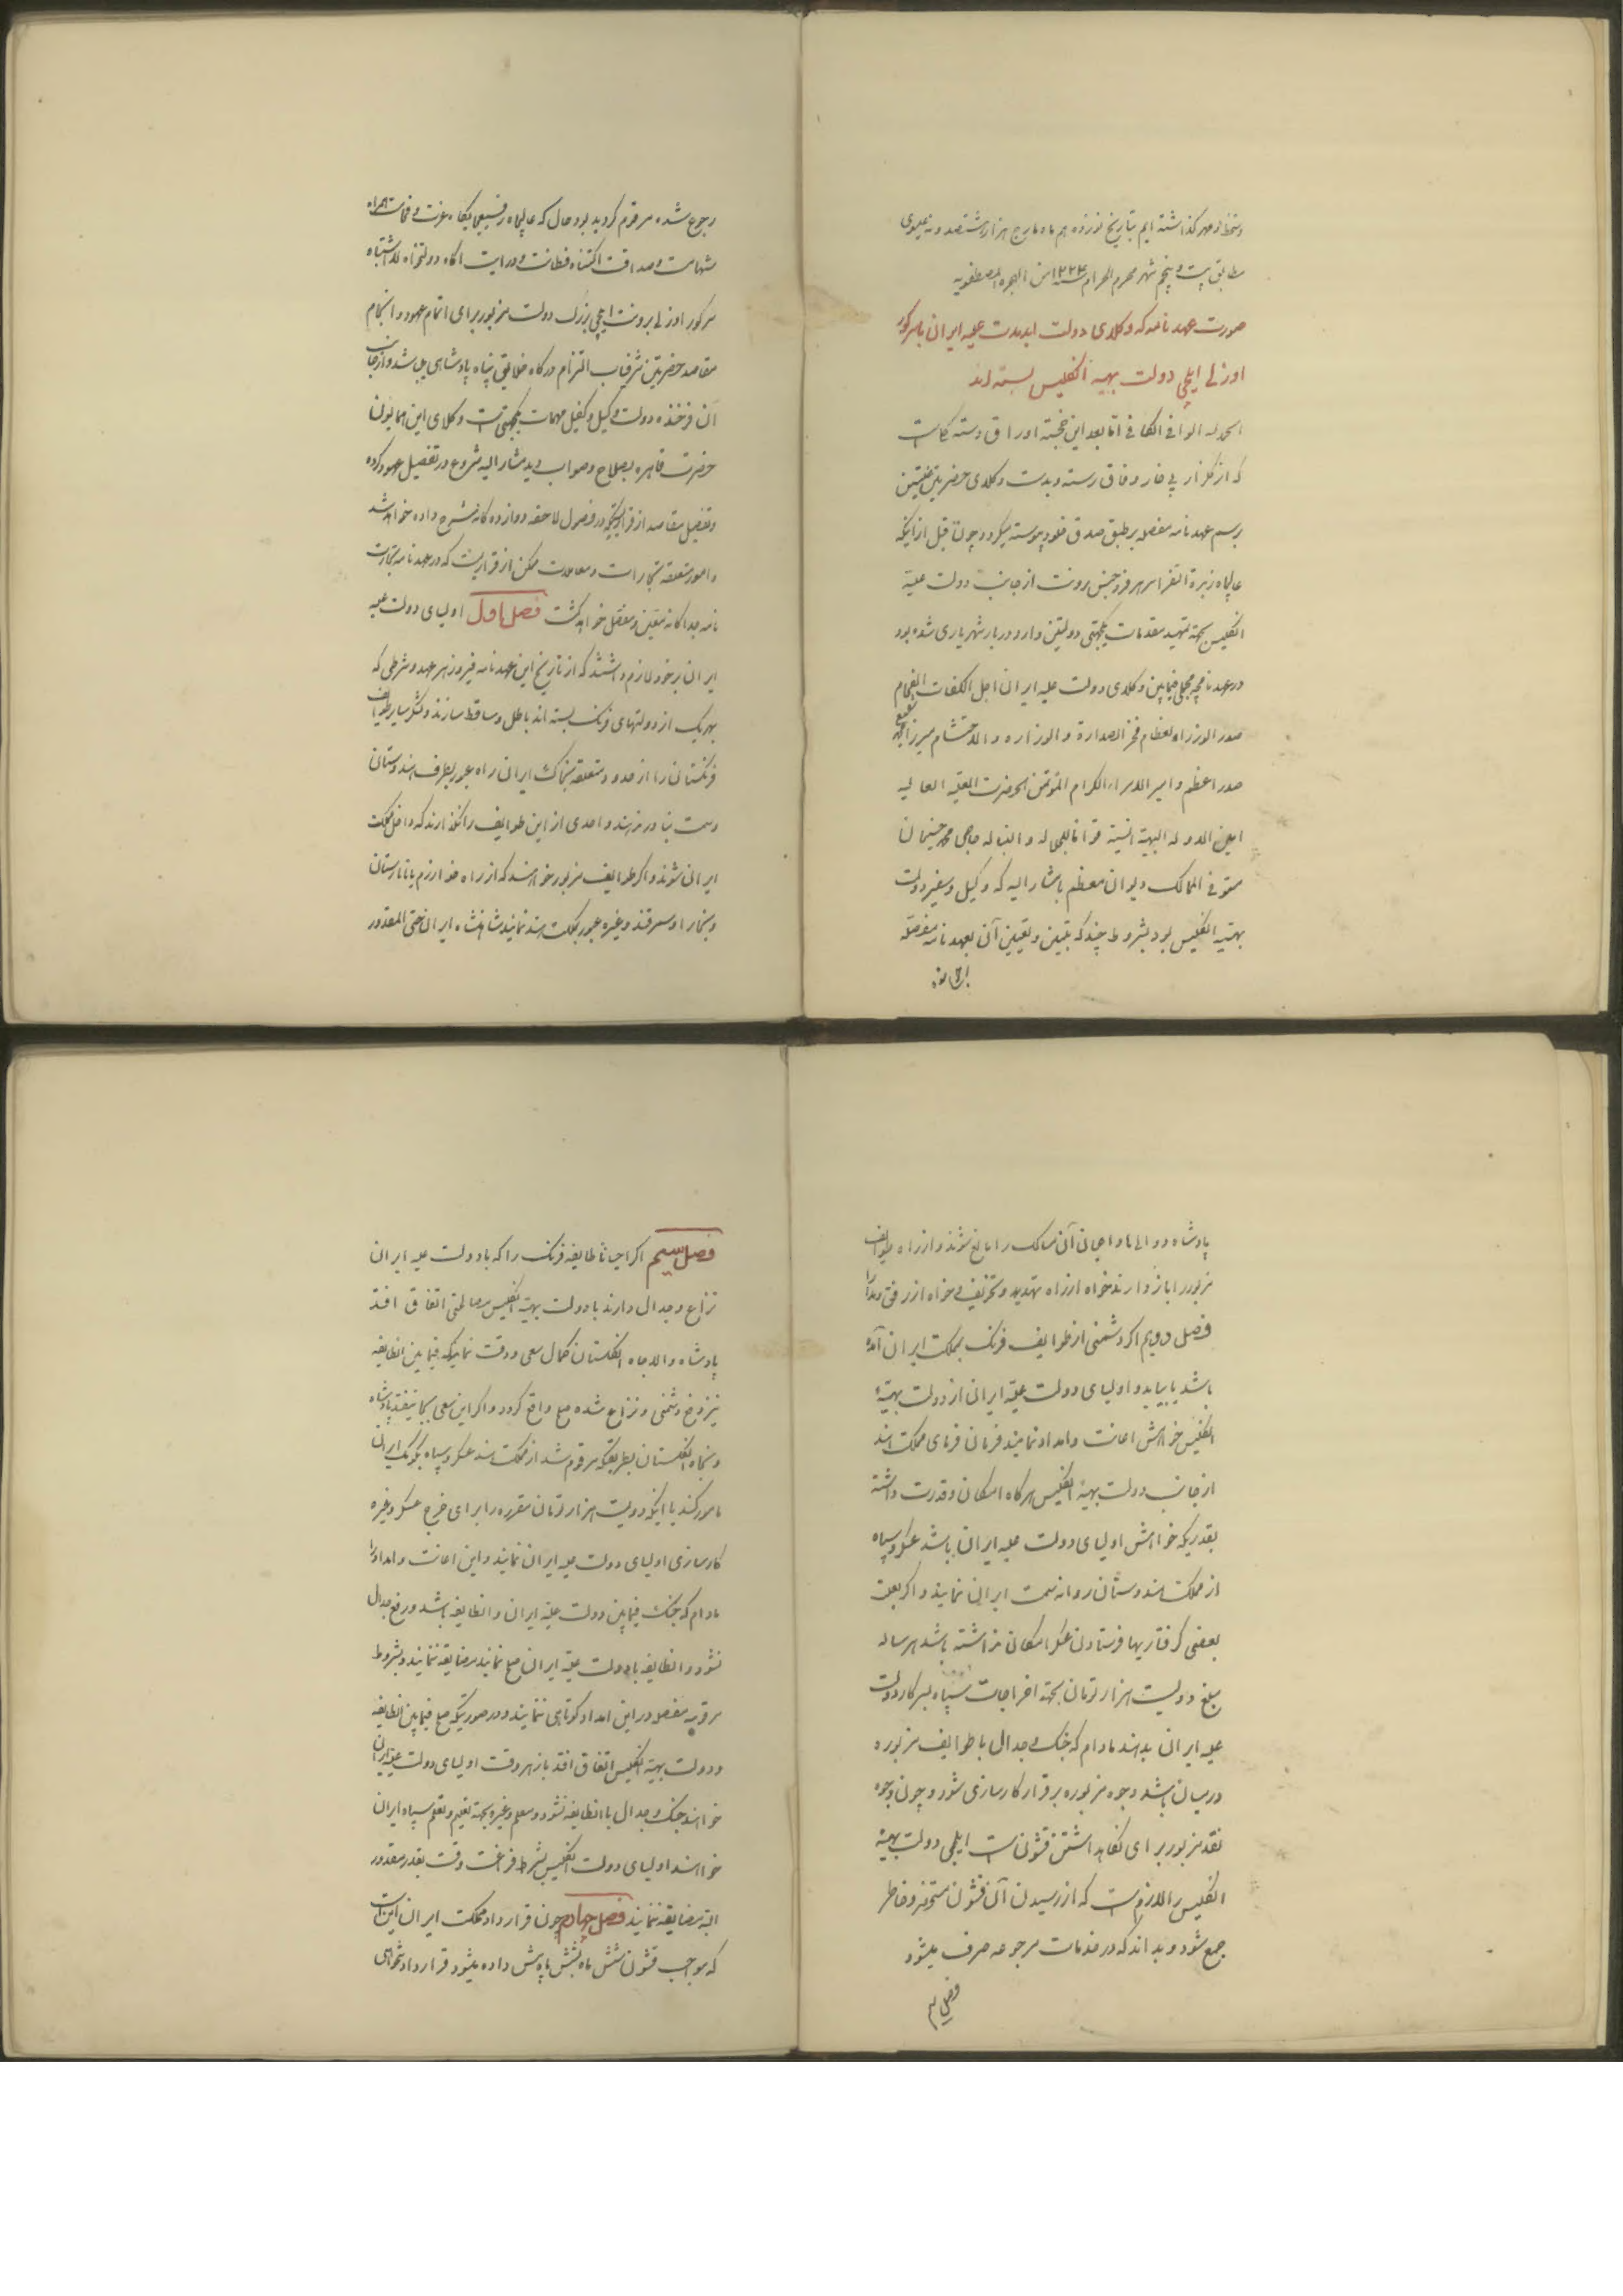 دستخط و مهر گذاشته ایم بتاریخ نوزدهم ماه مارج هزار و هشتصد و نه عیسوی
مطابق بیست و پنجم شهر محرم الحرام سنه ۱۲۲۴ من الهجره المصطفویه
صورت عهدنامه که وکلای دولت ابد مدت علیه ایران با سر کور
اوزلی ایلچی دولت بهیه انکلیس بسته اند
الحمد لله الوافی الکافی اما بعد این خجسته اوراق دسته کلیست
که از کلزار بی خار وفاق رسته و بدست وکلای حضرتین
برسم عهدنامه مفصله بر طبق صدق و خلود پیوسته میکردد چون قبل از اینکه
عالیجاه زبدة السفرا سر هرفرد جنس برونت از جانب دولت علیه
انکلیس بجهة تمهید مقدمات یکجهتی دولتین وارد دربار شهریاری شده بود
در عهدنامچه مجملی فیمابین وکلای دولت علیه ایران اجل الکفات الفخام
صدر الوزراء العظام فخر الصدارة و الوزاره و الاحتشام میرزا شفیع
صدر اعظم و امیر الامراء الکرام المؤتمن الحضرت العلیه العالیه
امین الدوله البهیة السنیه قواما للجلاله و النباله حاجی محمد حسینخان
مستوفی الممالک دیوان معظم با مشار الیه که وکیل و سفیر دولت
بهیه انکلیس بود بشروط چند که تبیین و تعیین آن بعهدنامه مفصله
رجوع شده مرقوم کردیده بود حال که عالیجاه رفیعجایکاه عزت و فخامت همراه
شهامت و صداقت اکتناه فطانت و درایت اکاه دولتخواه بلا اشتباه
سر کور اوزلی برونت ایلچی بزرک دولت مزبور برای اتمام عهود و انجام
مقاصد حضرتین شرفیاب التزام درکاه خلایق پناه پادشاهی میباشد و از جانب
آن فرخنده دولت وکیل و کفیل مهمات یکجهتی است وکلای این همایون
حضرت قاهره بصلاح و صواب دید مشار الیه شروع در تفصیل عهود کرده
و تفصیل مقاصد از قراریکه در فصول لاحقه دوازده کانه شرح داده خواهد شد
و امور متعلقه بتجارات و معاملات مملکتین از قراریست که در عهدنامه تجارت
نامه جداکانه متعین و مفصل خواهد کشت فصل اول اولیای دولت علیه
ایران بر خود لازم داشتند که از تاریخ این عهدنامه فیروز هر عهد و شرطی که
بهر یک از دولتهای فرنک بسته اند باطل و ساقط سازند و لشکر سایر طوایف
فرنکستان را از حدود متعلقه بخاک ایران راه عبور بطرف هندوستان
و سمت بنادر هند و احدی از این طوایف را نکذارند که داخل مملکت
ایران شوند و اکر طوایف مزبور خواهند که از راه خوارزم یا تاتارستان
و بخارا و سمرقند و غیره عبور بمملکت هند نمایند شاهنشاه ایران حتی المقدور
پادشاه و والیها و اعیان آن ممالک را مانع شوند و از راه طوایف
مزبور را باز دارند خواه از راه تهدید و تخویف و خواه از رفق و مدارا
فصل دویم اکر دشمنی از طوایف فرنک بمملکت ایران آمده
باشد یا بیاید و اولیای دولت علیه ایران از دولت بهیه
انکلیس خواهش اعانت و امداد نمایند فرمان فرمای مملکت هند
از جانب دولت بهیه انکلیس هرکاه امکان و قدرت داشته
بقدریکه خواهش اولیای دولت علیه ایران باشد عسکر و سپاه
از مملکت هندوستان روانه سمت ایران نمایند و اکر بعلت
بعضی کرفتاریها فرستادن عسکر امکان نداشته باشد هر ساله
مبلغ دویست هزار تومان بجهة اخراجات سپاه بسرکار دولت
علیه ایران بدهند مادام که جنک و جدال با طوایف مزبوره
در میان باشد وجوه مزبوره برقرار کارسازی شود و چون وجوه
نقد مزبور برای نکاهداشتن قشون است ایلچی دولت بهیه
انکلیس را لازم است که از رسیدن آن بقشون مستحضر و خاطر
جمع شود و بداند که در خدمات مرجوعه صرف میشود
فصل سیم
فصل سیم اکر احیانا طایفه فرنک را که با دولت علیه ایران
نزاع و جدال دارند با دولت بهیه انکلیس مصالحتی اتفاق افتد
پادشاه والاجاه انکلستان کمال سعی و دقت نمایند که فیمابین انطایفه
نیز رفع دشمنی و نزاع شده صلح واقع کردد و اکر این سعی بجا نیفتد پادشاه
ذیجاه انکلستان بطریقیکه مرقوم شد از مملکت هند عسکر و سپاه بکومک ایران
مامور کند یا اینکه دویست هزار تومان مقرره را برای خرج عسکر و غیره
کارسازی اولیای دولت علیه ایران نمایند و این اعانت و امداد را
مادام که جنک فیمابین دولت علیه ایران و انطایفه باشد و رفع جدال
نشود و انطایفه با دولت علیه ایران صلح نمایند مضایقه ننمایند و بشروط
مرقومه مفصله در این امداد کوتاهی ننمایند و در صورتیکه صلح فیمابین انطایفه
و دولت بهیه انکلیس اتفاق افتد باز هر وقت اولیای دولت علیه ایران
خواهند جنک و جدال با انطایفه نشود و معلم و غیره بجهة تعلیم و تعلم سپاه ایران
خواهند اولیای دولت انکلیس بشرط فراغت وقت بقدر مقدور
البته مضایقه ننمایند فصل چهارم چون قرارداد مملکت ایران اینست
که مواجب قشون شش ماه بشش ماه پیش داده میشود قرارداد تنخواهی